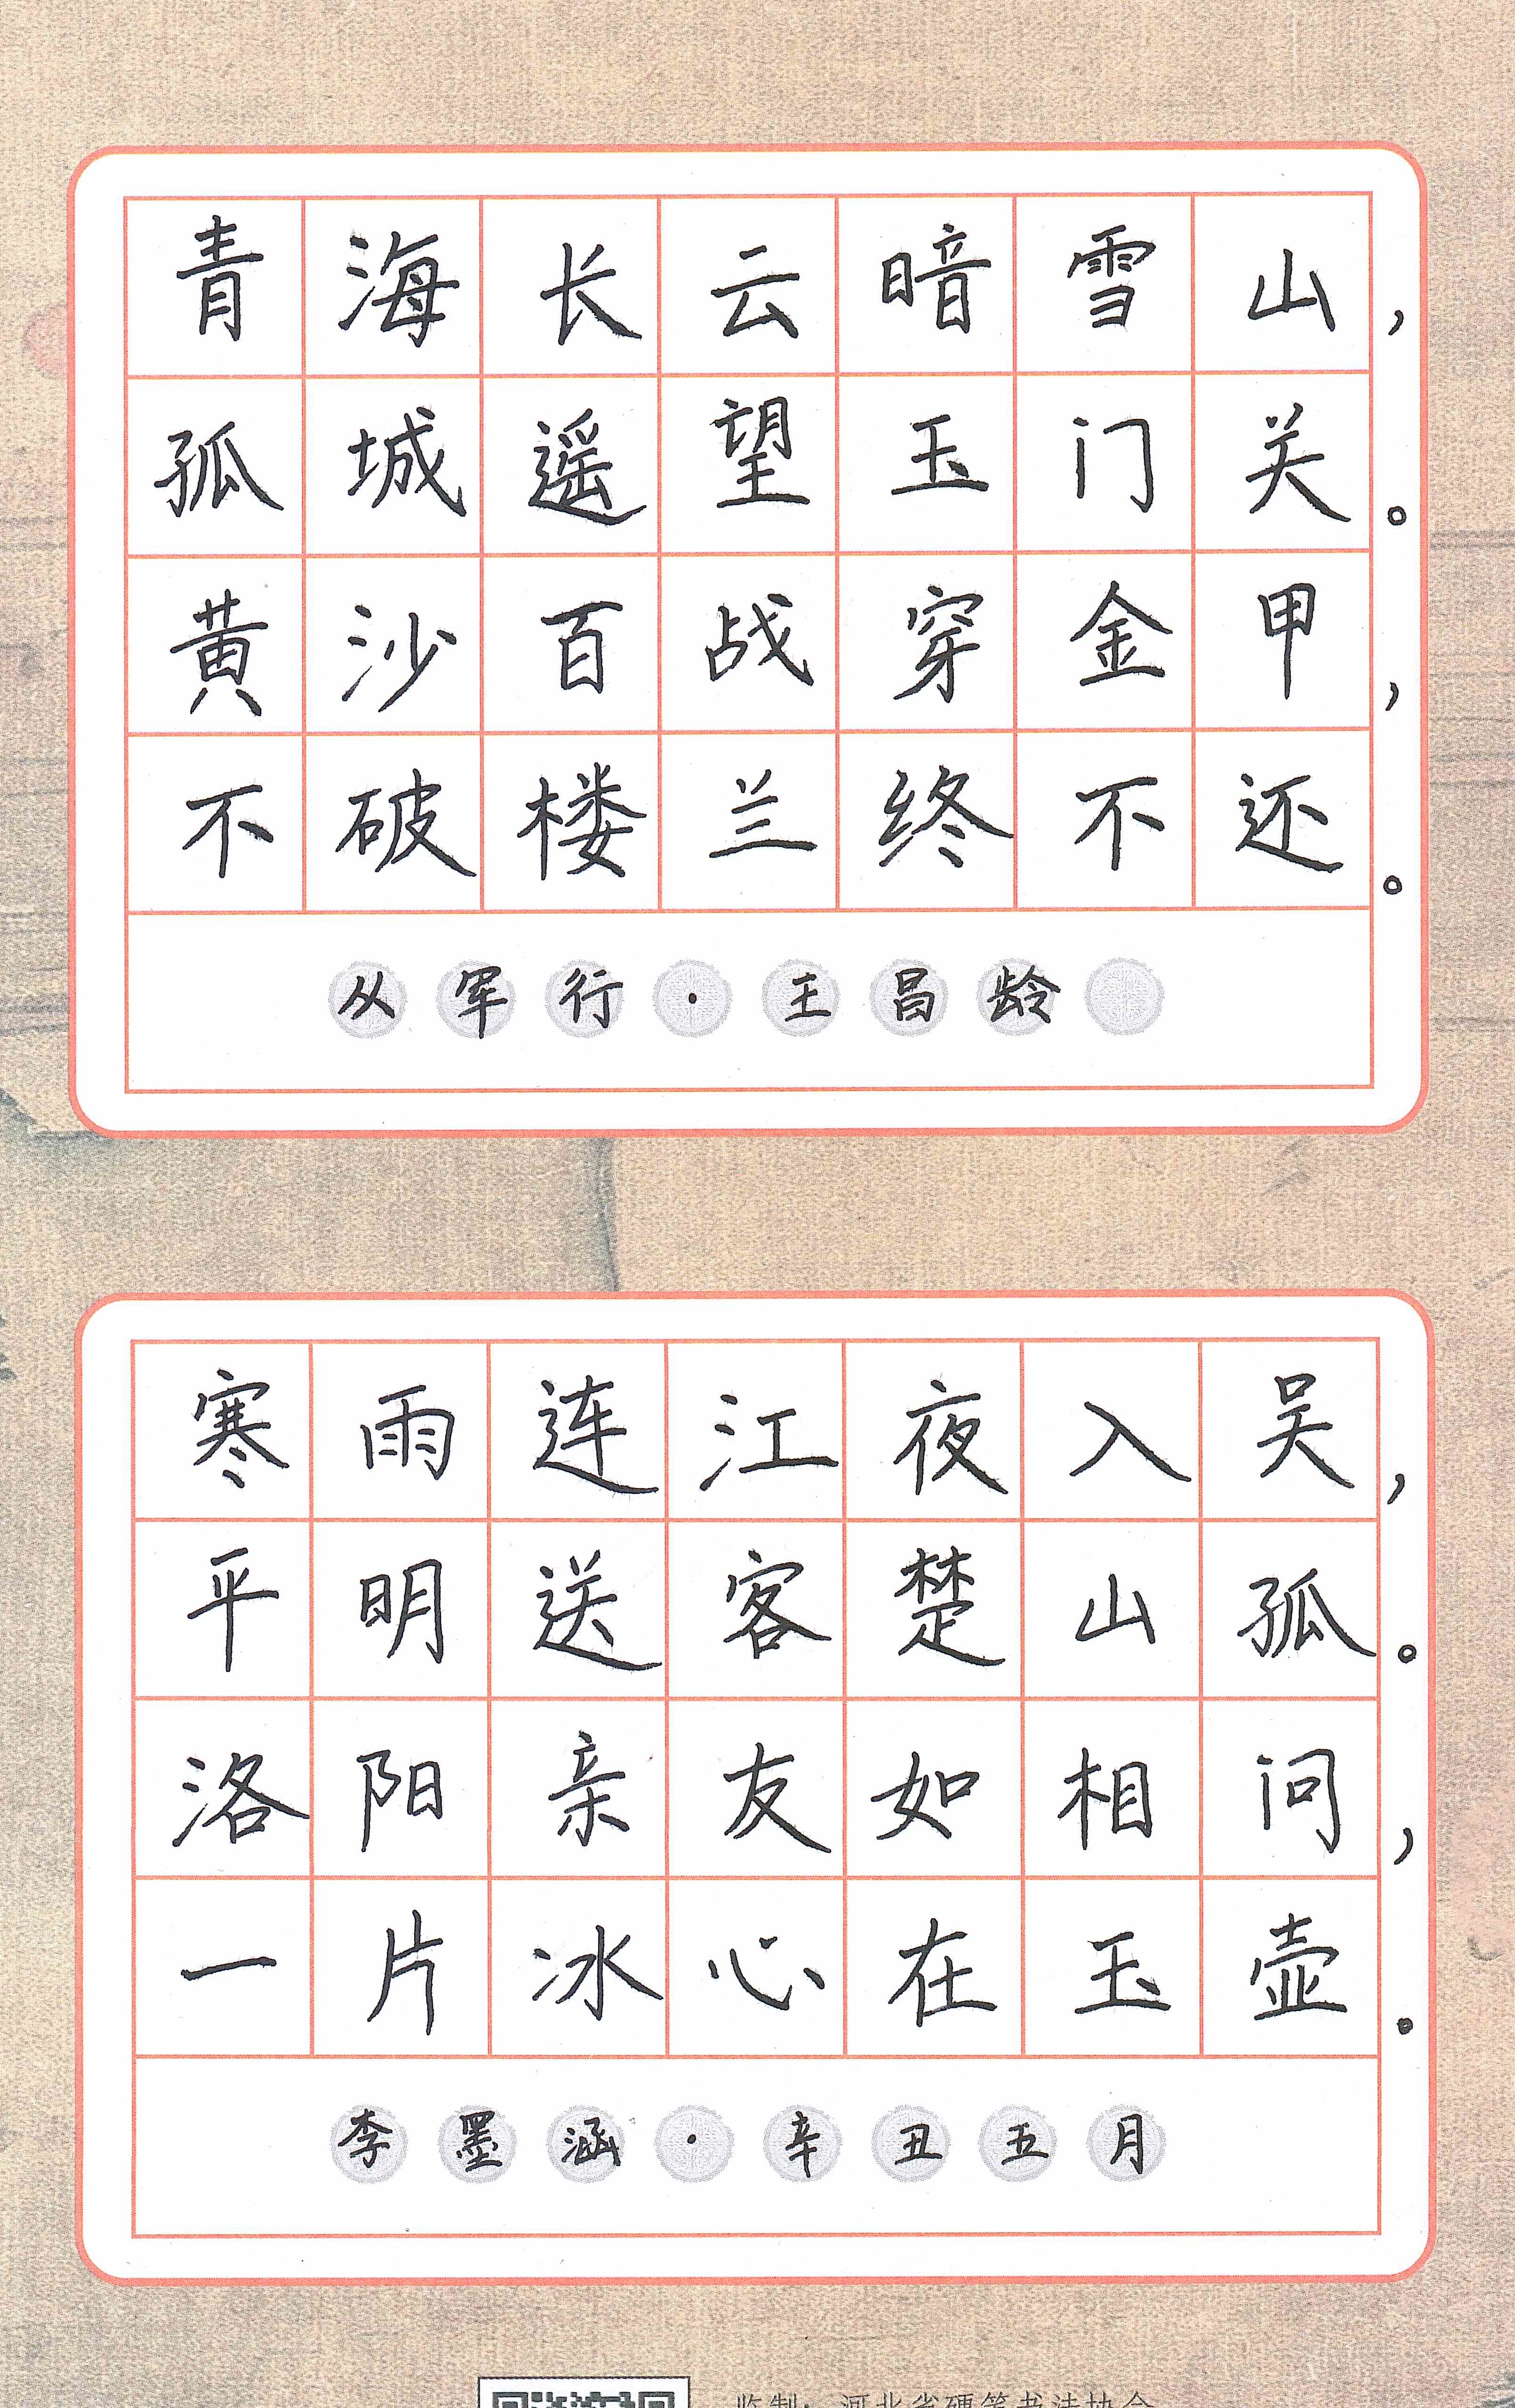 青海长云暗雪山，
孤城遥望玉门关。
黄沙百战穿金甲，
不破楼兰终不还。
从军行·王昌龄
寒雨连江夜入吴，
平明送客楚山孤。
洛阳亲友如相问，
一片冰心在玉壶。
李墨涵·辛丑五月
监制：河北省硬笔书法协会